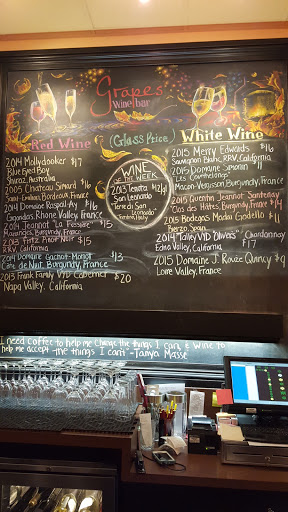 Grapes
Wine bar
Red Wine
(Glass Price)
White Wine
2014 Mollydooker $17
Blue Eyed Boy
Shiraz, Australia
2005 Chateau Simard $16
Saint-Emilion, Bordeaux, France
2014 Domaine Raspail-Ay $16
Gigondas, Rhone Valley, France
2014 Jeannot $15
Maranges, Burgundy, France
2013 Fritz Pinot Noir $15
RRV, California
2014 Domaine Gachot-Monot $13
Cote de Nuit, Burgundy, France
2013 Frank Family VYD Cabernet $20
Napa Valley, California
WINE
OF THE WEEK
2013 Tenuta $12
San Leonardo
Terre di San
Leonardo
Trentino, Italy
2015 Merry Edwards $16
Sauvignon Blanc, RRV, California
2015 Domaine Simonin $11
Les
Macon-Vergisson, Burgundy, France
2015 Quentin Jeannot Santenay
"Clos des Hates", Burgundy, France $14
2015 Bodegas Madai Godello $11
Bierzo, Spain
2014 "Talley VYD "Olivers" Chardonnay
Edna Valley, California $17
2015 Domaine J. Rouze Quincy $9
Loire Valley, France
I need coffee to help me change the things I can, & wine to
help me accept the things I can't - Tanya Masse